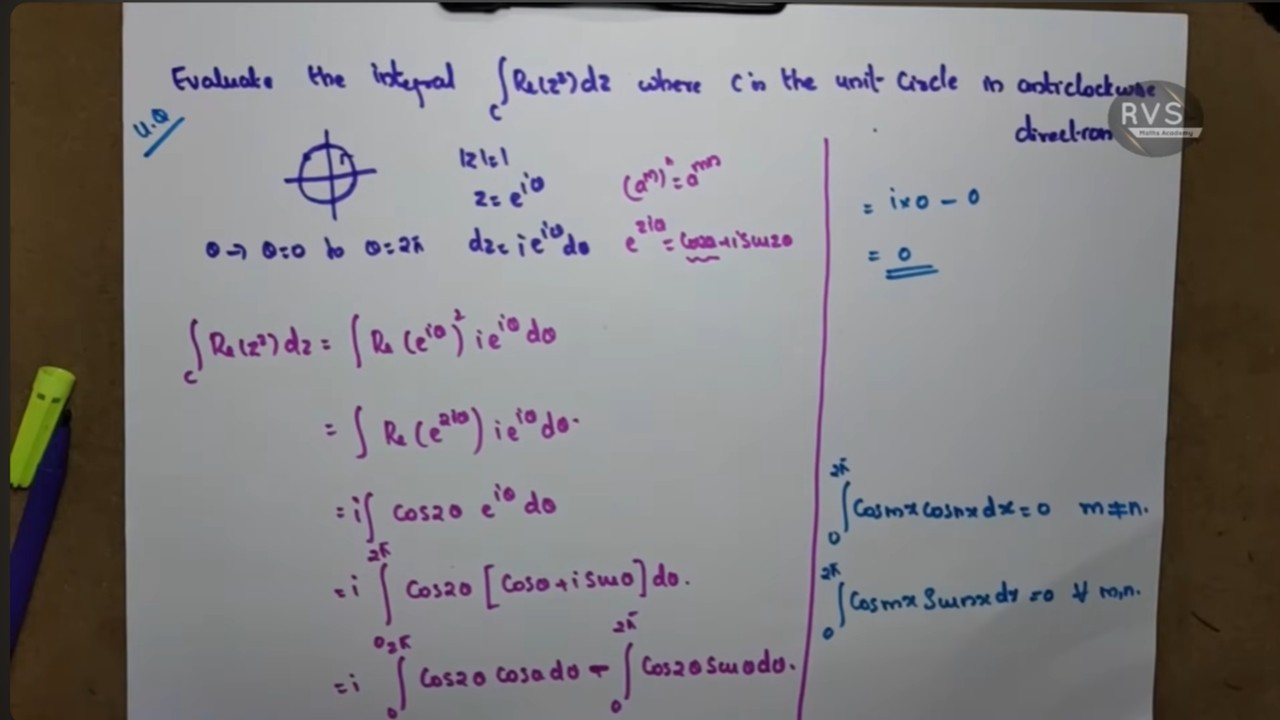 Evaluate the integral ∫_C Re(z²)dz where C is the unit circle in anticlockwise
direction
U.Q
RVS
Maths Academy
|z|=1
z = e^{iθ}
(a^m)^n = a^{mn}
θ → θ=0 to θ=2π dz = ie^{iθ}dθ e^{2iθ} = cos2θ+isin2θ
∫_C Re(z²)dz = ∫ Re(e^{iθ})² ie^{iθ}dθ
= ∫ Re(e^{2iθ}) ie^{iθ}dθ.
= i∫ cos2θ e^{iθ}dθ
= i ∫_0^{2π} cos2θ [cosθ+isinθ]dθ.
= i ∫_0^{2π} cos2θ cosθdθ - ∫_0^{2π} cos2θ sinθdθ.
= i×0 - 0
= 0
∫_0^{2π} cosmx cosnxdx = 0 m≠n.
∫_0^{2π} cosmx sinnxdx = 0 ∀ m,n.